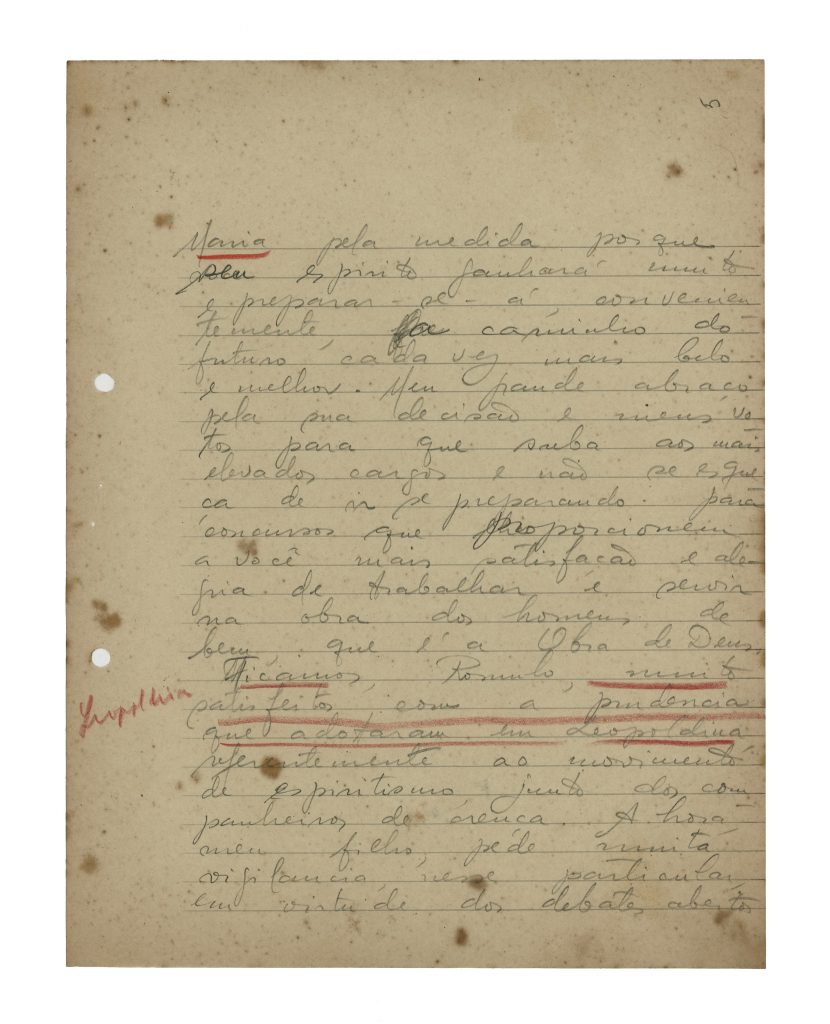 5
Maria pela medida porque
seu espirito ganhará muito
e preparar-se-á convenien
temente, p/a o caminho do
futuro, cada vez mais belo
e melhor. Meu grande abraço
pela sua decisão e meus vo
tos para que suba aos mais
elevados cargos e não se esque
ca de ir se preparando para
concursos que proporcionem
a você mais satisfacão e ale-
gria de trabalhar e servir
na obra dos homens de
bem, que é a Obra de Deus.
Ficámos, Romulo, muito
Leopoldina
satisfeitos, com a prudencia
que adotaram em Leopoldina
referentemente ao movimento
de espiritismo junto dos com
panheiros de crença. A hora,
meu filho, péde muita
vigilancia, nesse particular,
em virtude dos debates abertos